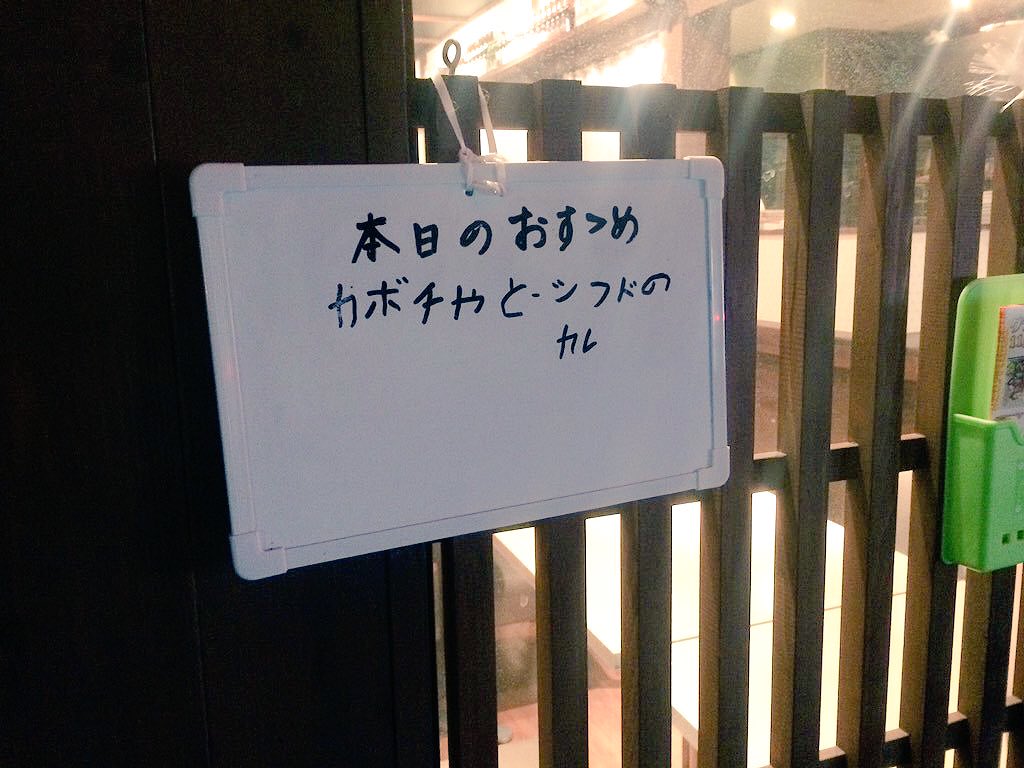 本日のおすゝめ
カボチャと・シフドの
カレ